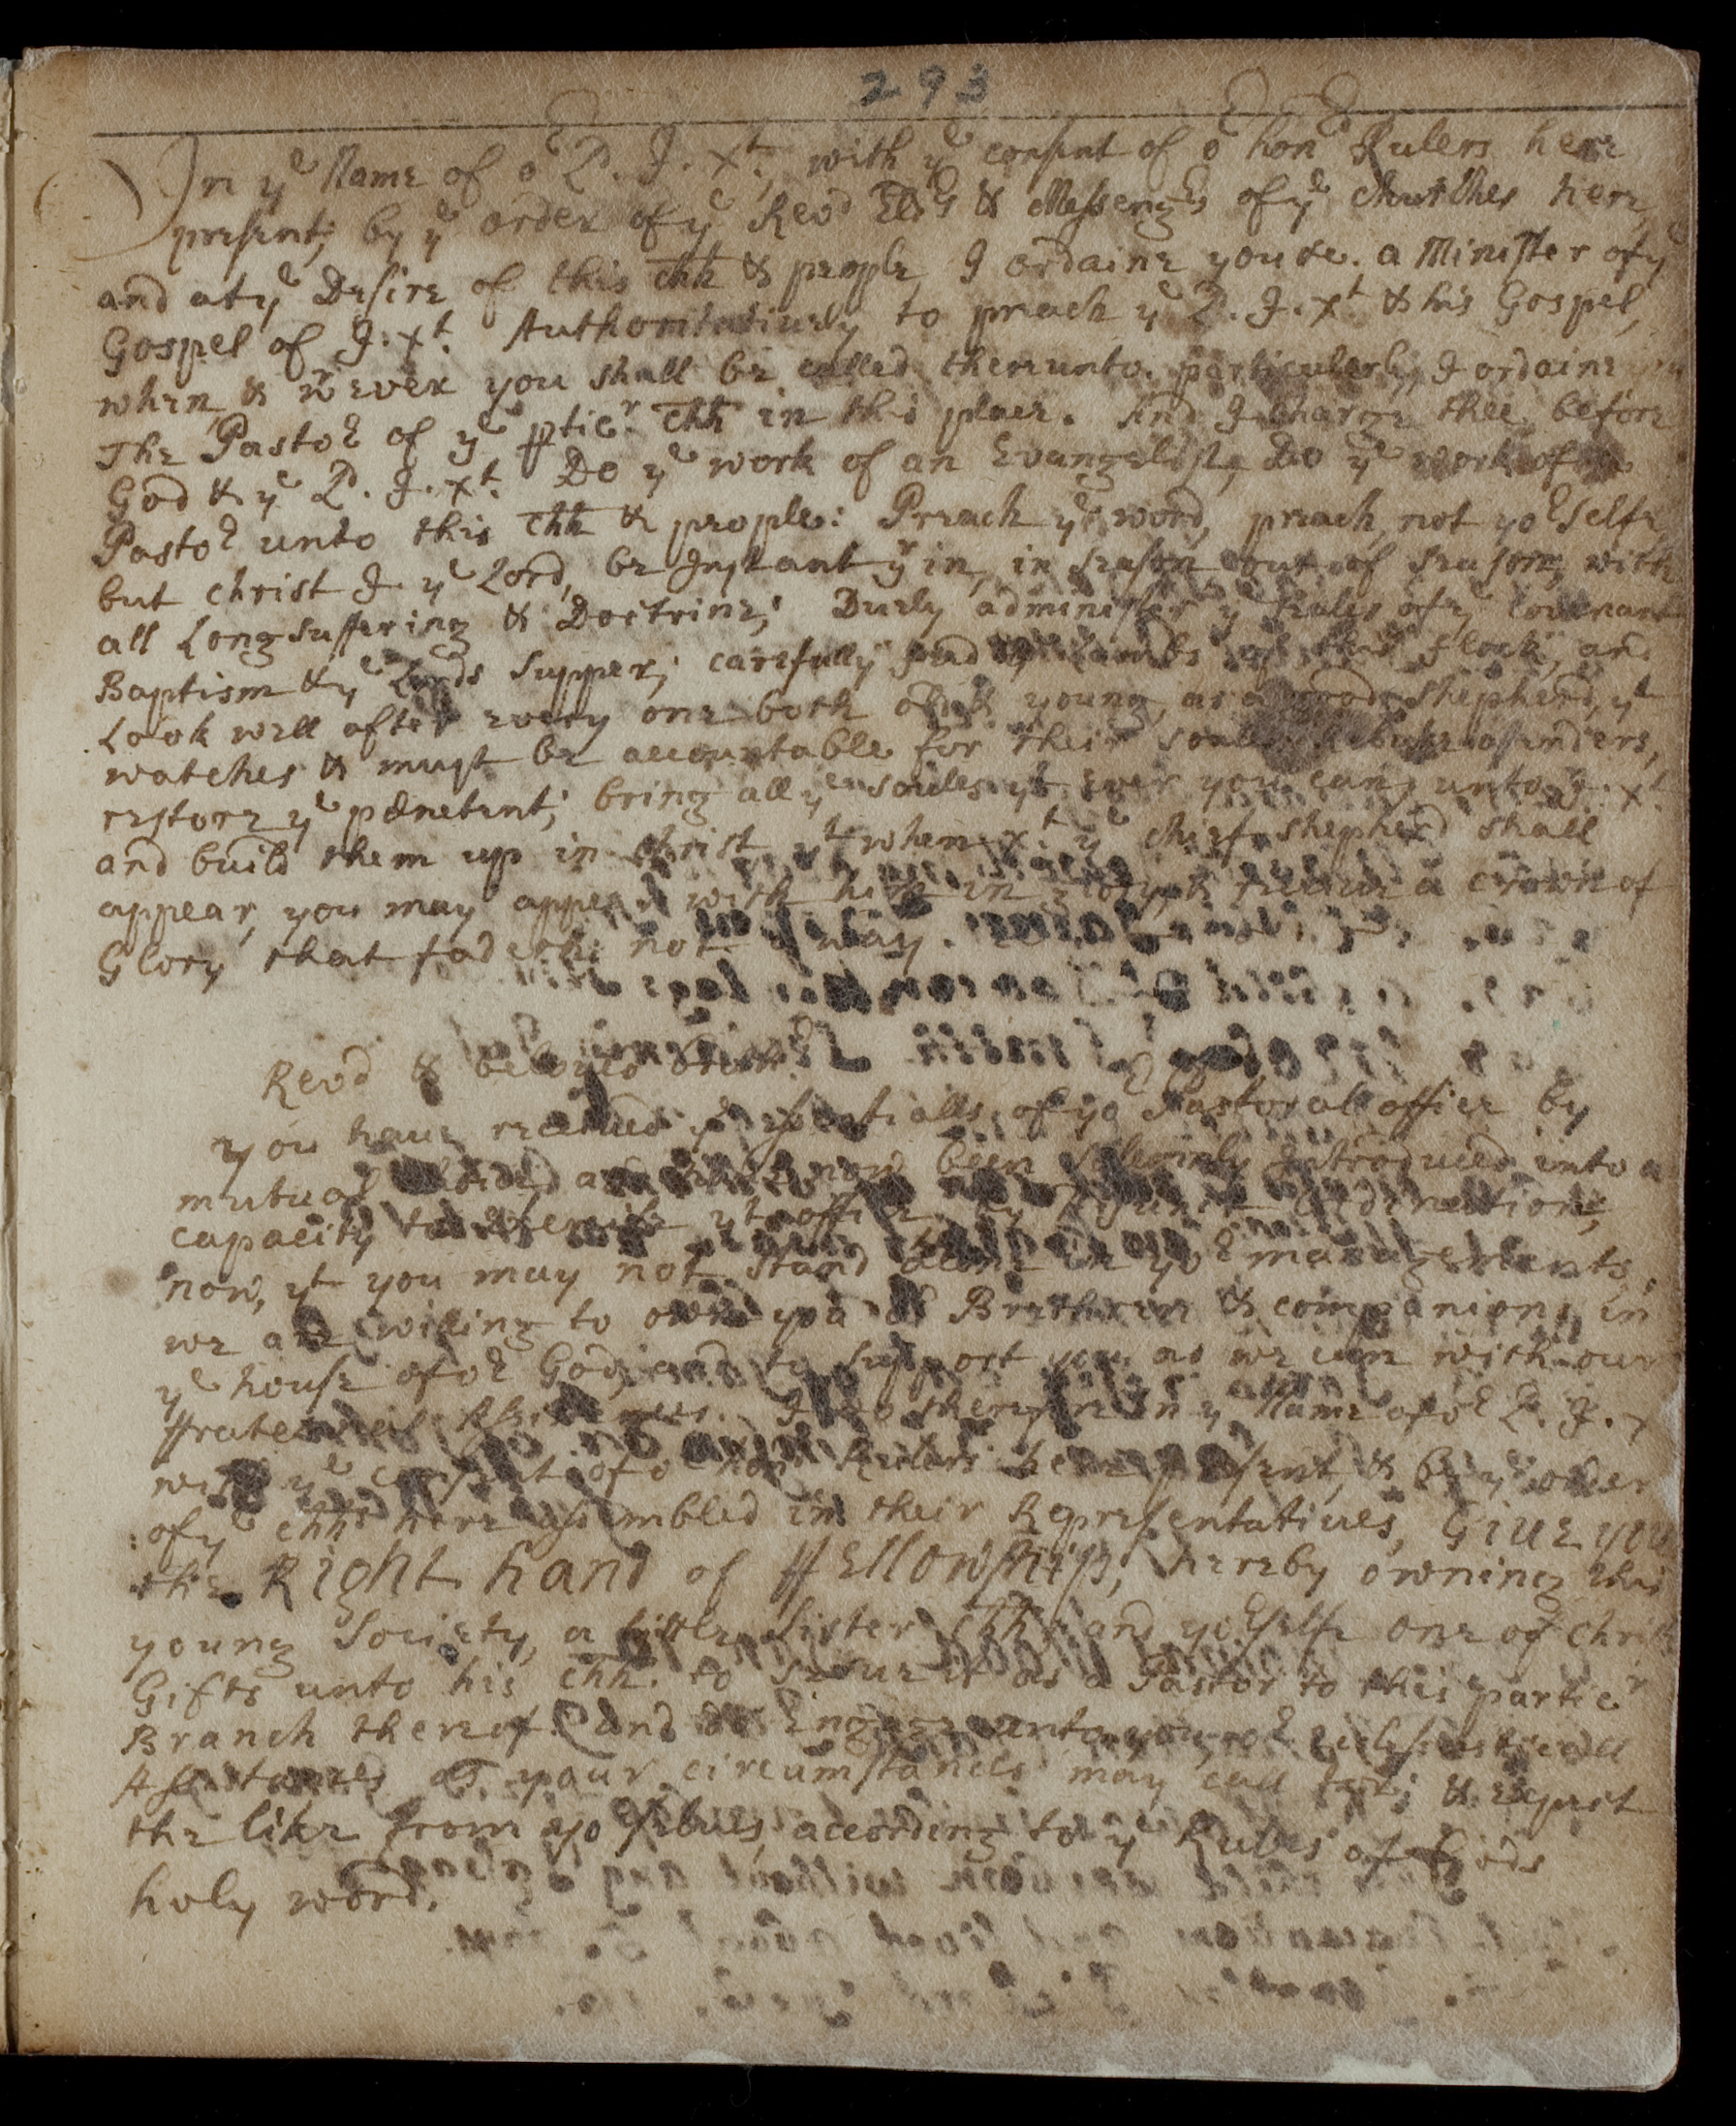 293
In yᵉ Name of oʳ L. J. Xᵗ, with yᵉ consent of oʳ honᵈ Rulers here
present; by yᵉ order of yᵉ Revᵈ Eldʳˢ & Messengʳˢ of yᵉ Churches here,
and at yᵉ Desire of this Chh & people, I ordaine you &c. a Minister of yᵉ
Gospel of J. Xᵗ. Authoritatively to preach yᵉ L. J. Xᵗ & his Gospel,
when, & wʳever you shall be called thereunto. particularly, I ordaine you
The Pastoʳ of yᵉ pticʳ Chh in this place. And I charge thee, before
God & yᵉ L. J. Xᵗ. Do yᵉ work of an Evangelist, Do yᵉ work of a
Pastoʳ unto this Chh & people: Preach yᵉ word, preach, not yoʳ Selfe,
but christ J. yᵉ Lord, be Instant yʳin, in season out of season, with
all Longsuffering & Doctrine; Duely administer yᵉ Seales of yᵉ Covenant
Baptism & yᵉ Lords Supper; carefully feed yᵉ Lambs of this flock, and
Look well after every one both old & young, as a good Shepherd, yᵗ
watches & must be accountable for their soules, Rebuke ofenders,
restore yᵉ pœnetent; bring all yᵉ soules yᵗ ever you can, unto J. Xᵗ.
and build them up in christ, yᵗ when Xᵗ. yᵉ chief shepherd shall
appear, you may appear with him in glory, & receive a crown of
Glory that fadeth not away.
Revd & beloved Brothʳ.
you have received yᵉ essentialls of yoʳ Pastoral office by
mutual and have now been solemnly Introduced into a
capacity to Exercise yᵗ office by Ordination;
now, yᵗ you may not stand alone in yoʳ managements,
we are willing to owne you as Brethren & companions in
yᵉ house of oʳ God, and to support you as we can with our
ffraternal Assistances. I do therefore in yᵉ Name of oʳ L. J. X
with yᵉ consent of oʳ honᵈ Rulers here present, & by yᵉ order
of yᵉ chhˢ here assembled in their Representatives, Give you
the Right hand of ffellowship, hereby owning this
young Society, a little Sister Chh, and yoʳselfe one of christs
Gifts unto his Chh. to serve it as a Pastor to this particʳ
Branch thereof. and do Engage unto you, oʳ ecclesiasticall
Assistances as your circumstances may call for; & expect
the like from yoʳselves, according to yᵉ Rules of Gods
holy word.